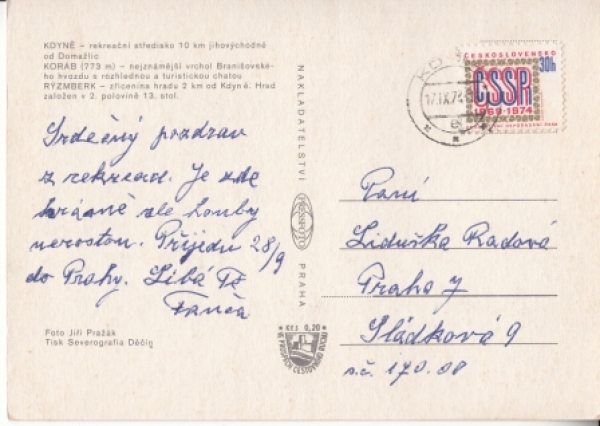 KDYNĚ – rekreační středisko 10 km jihovýchodně
od Domažlic
KORAB (773 m) – nejznámější vrchol Branišovské-
ho hvozdu s rozhlednou a turistickou chatou
RÝZMBERK – zřícenina hradu 2 km od Kdyně. Hrad
založen v 2. polovině 13. stol.
Srdečný pozdrav
z rekreace. Je zde
krásně ale houby
nerostou. Přijedu 28/9
do Prahy. Líbá Tě
Foto Jiří Pražák
Tisk Severografia Děčín
NAKLADATELSTVÍ
PRESSFOTO
PRAHA
Kčs 0,20
VE PROSPĚCH CESTOVNÍHO RUCHU
KDYNĚ
17.IX.74
ČESKOSLOVENSKO
30h
ČSSR
1969-1974
Paní
Liduška Radová
Praha 7
Sládkova 9
s.č. 170 08